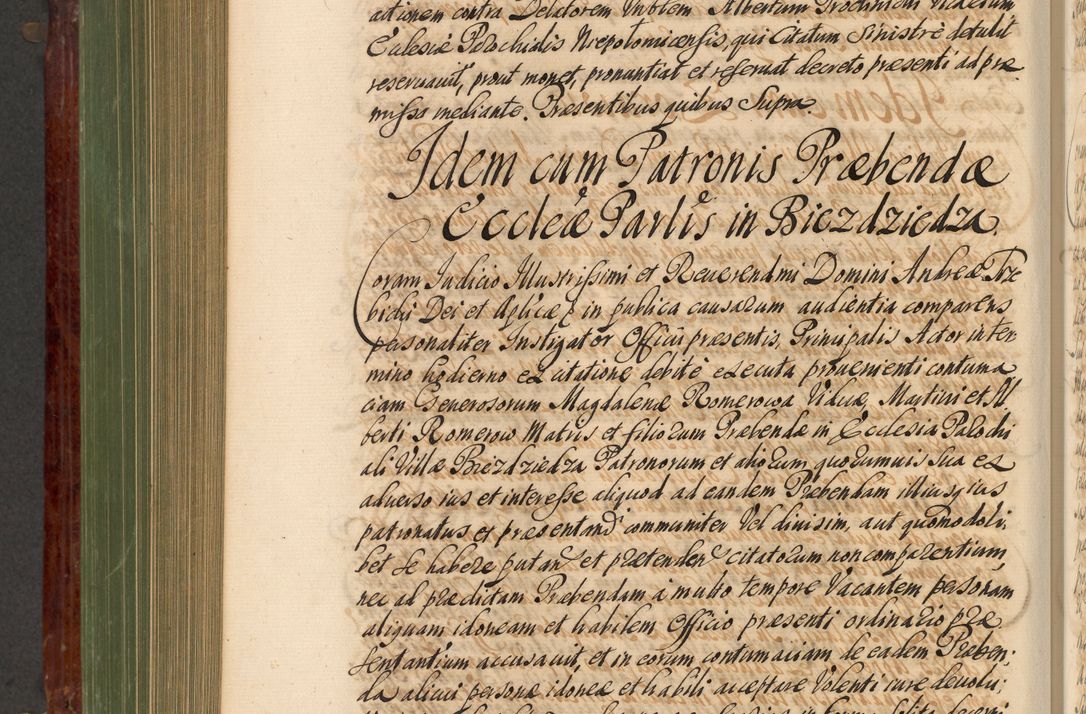 actionem contra Delatorem Vnblem Albertum
Ecclesiæ Parochialis Niepolomicensis, qui Citatum Sinistrè detulit
reseruauit, prout monet, pronuntiat et reseruat decreto præsenti ad præ
missa mediante. Præsentibus quibus Supra.
Idem cum Patronis Præbendæ
Eccleæ Parlis in Biezdziedza.
Coram Iudicio Illustrissimi et Reuerendmi Domini Andreæ Trze
bicki Dei et Aplicæ in publica causarum audientia comparens
personaliter Instigator Officii præsentis, Principalis Actor in ter
mino hodierno ex citatione debitè executa proueniènti contuma
ciam Generosorum Magdalenæ Romerowa Viduæ, Martini et Al
berti Romerow Matris et filiorum Præbendæ in Ecclesia Parochi
ali Villæ Biezdziedza Patronorum et aliorum quorumuis Sua ex
aduerso ius et interesse aliquod ad eandem Præbendam illiusq ius
patronatus et præsentand communiter Vel diuisim, aut quomodoli,
bet se habere putan et prætenden citatorum non comparentium,
nec ad prædictam Præbendam à multo tempore Vacantem personam
aliquam idoneam et habilem Officio præsenti ordinario præ
sentantium accusauit, et in eorum contumaciam de eadem Præben,
da alicui personæ idoneæ et habili acceptare Volenti iure deuolu,